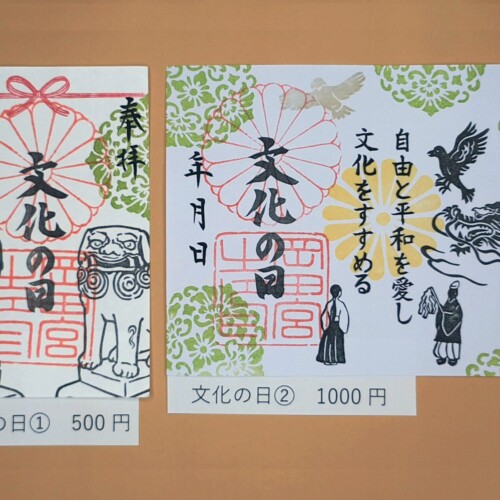 奉拝
文化の日
の日① 500円
自由と平和を愛し
文化をすすめる
文化の日
年月日
文化の日② 1000円